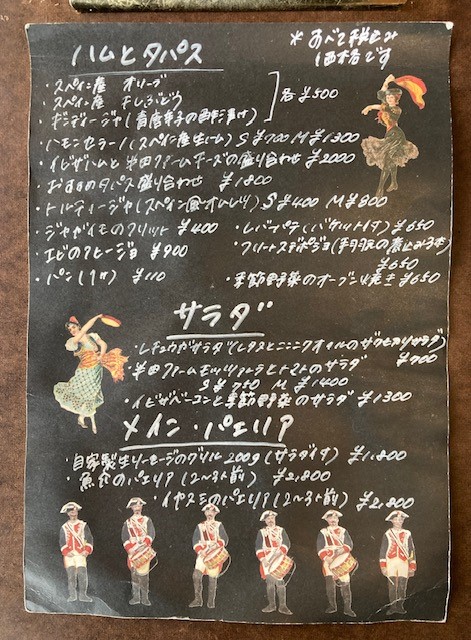 ハムとタパス
*すべて税込み
価格です
・スペイン産 オリーブ
・スペイン産 干しぶどう
・ギンディージャ(青唐辛子の酢漬け)
各¥500
・ハモンセラーノ(スペイン産生ハム) S ¥700 M ¥1300
・イビザハムと半田ファームチーズの盛り合わせ ¥2000
・おすすめタパス盛り合わせ ¥1800
・トルティージャ(スペイン風オムレツ) S ¥400 M ¥800
・ジャガイモのフリット ¥400
・レバーパテ(バケット付) ¥650
・エビのアヒージョ ¥900
・フリートスデポジョ(手羽
¥650
・パン(1ケ) ¥110
・季節野菜のオーブン焼き ¥650
サラダ
・レチュガサラダ(レタスとニンニクオイルのザクザクサラダ)
¥700
・半田ファームモッツァレラとトマトのサラダ
S ¥750 M ¥1400
・イビザベーコンと季節野菜のサラダ ¥1300
メイン・パエリア
・自家製生ソーセージのグリル 200g (サラダ付) ¥1,800
・魚介のパエリア (2〜3人前) ¥2,800
・イカスミのパエリア (2〜3人前) ¥2,800